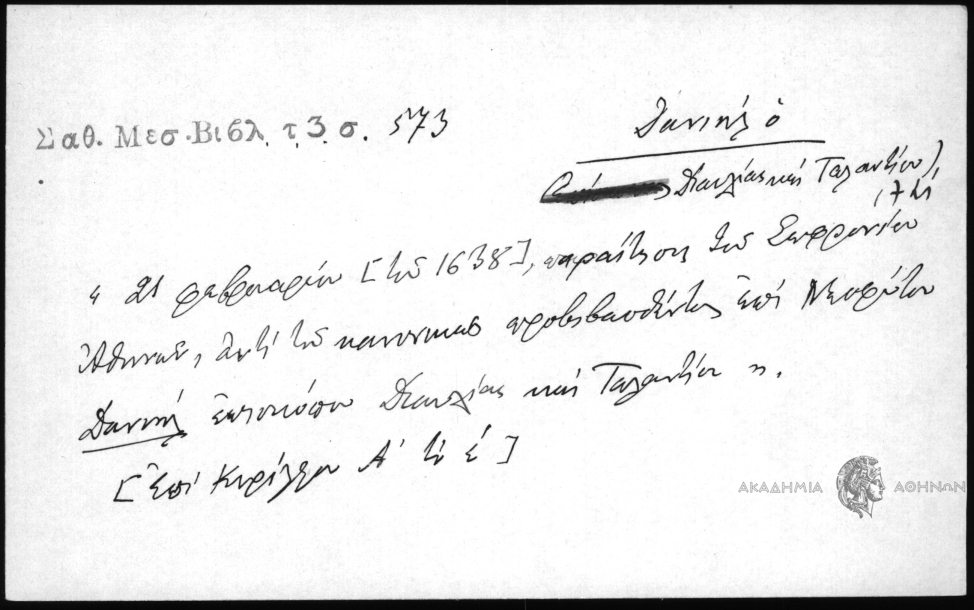 Σαθ. Μεσ. Βιβλ. τ. 3 σ. 573
Δανιήλ ὁ
Διαυλίας καὶ Ταλαντίου)
« 21 φεβρουαρίου [τοῦ 1638], παραίτησις τοῦ Σωφρονίου
Ἀθηνῶν, ἀντὶ τοῦ κανονικῶς προβιβασθέντος ἐπὶ Νεοφύτου
Δανιήλ ἐπισκόπου Διαυλίας καὶ Ταλαντίου ».
[Ἐπὶ Κυρίλλου Α΄ τὸ έ]
ΑΚΑΔΗΜΙΑ ΑΘΗΝΩΝ